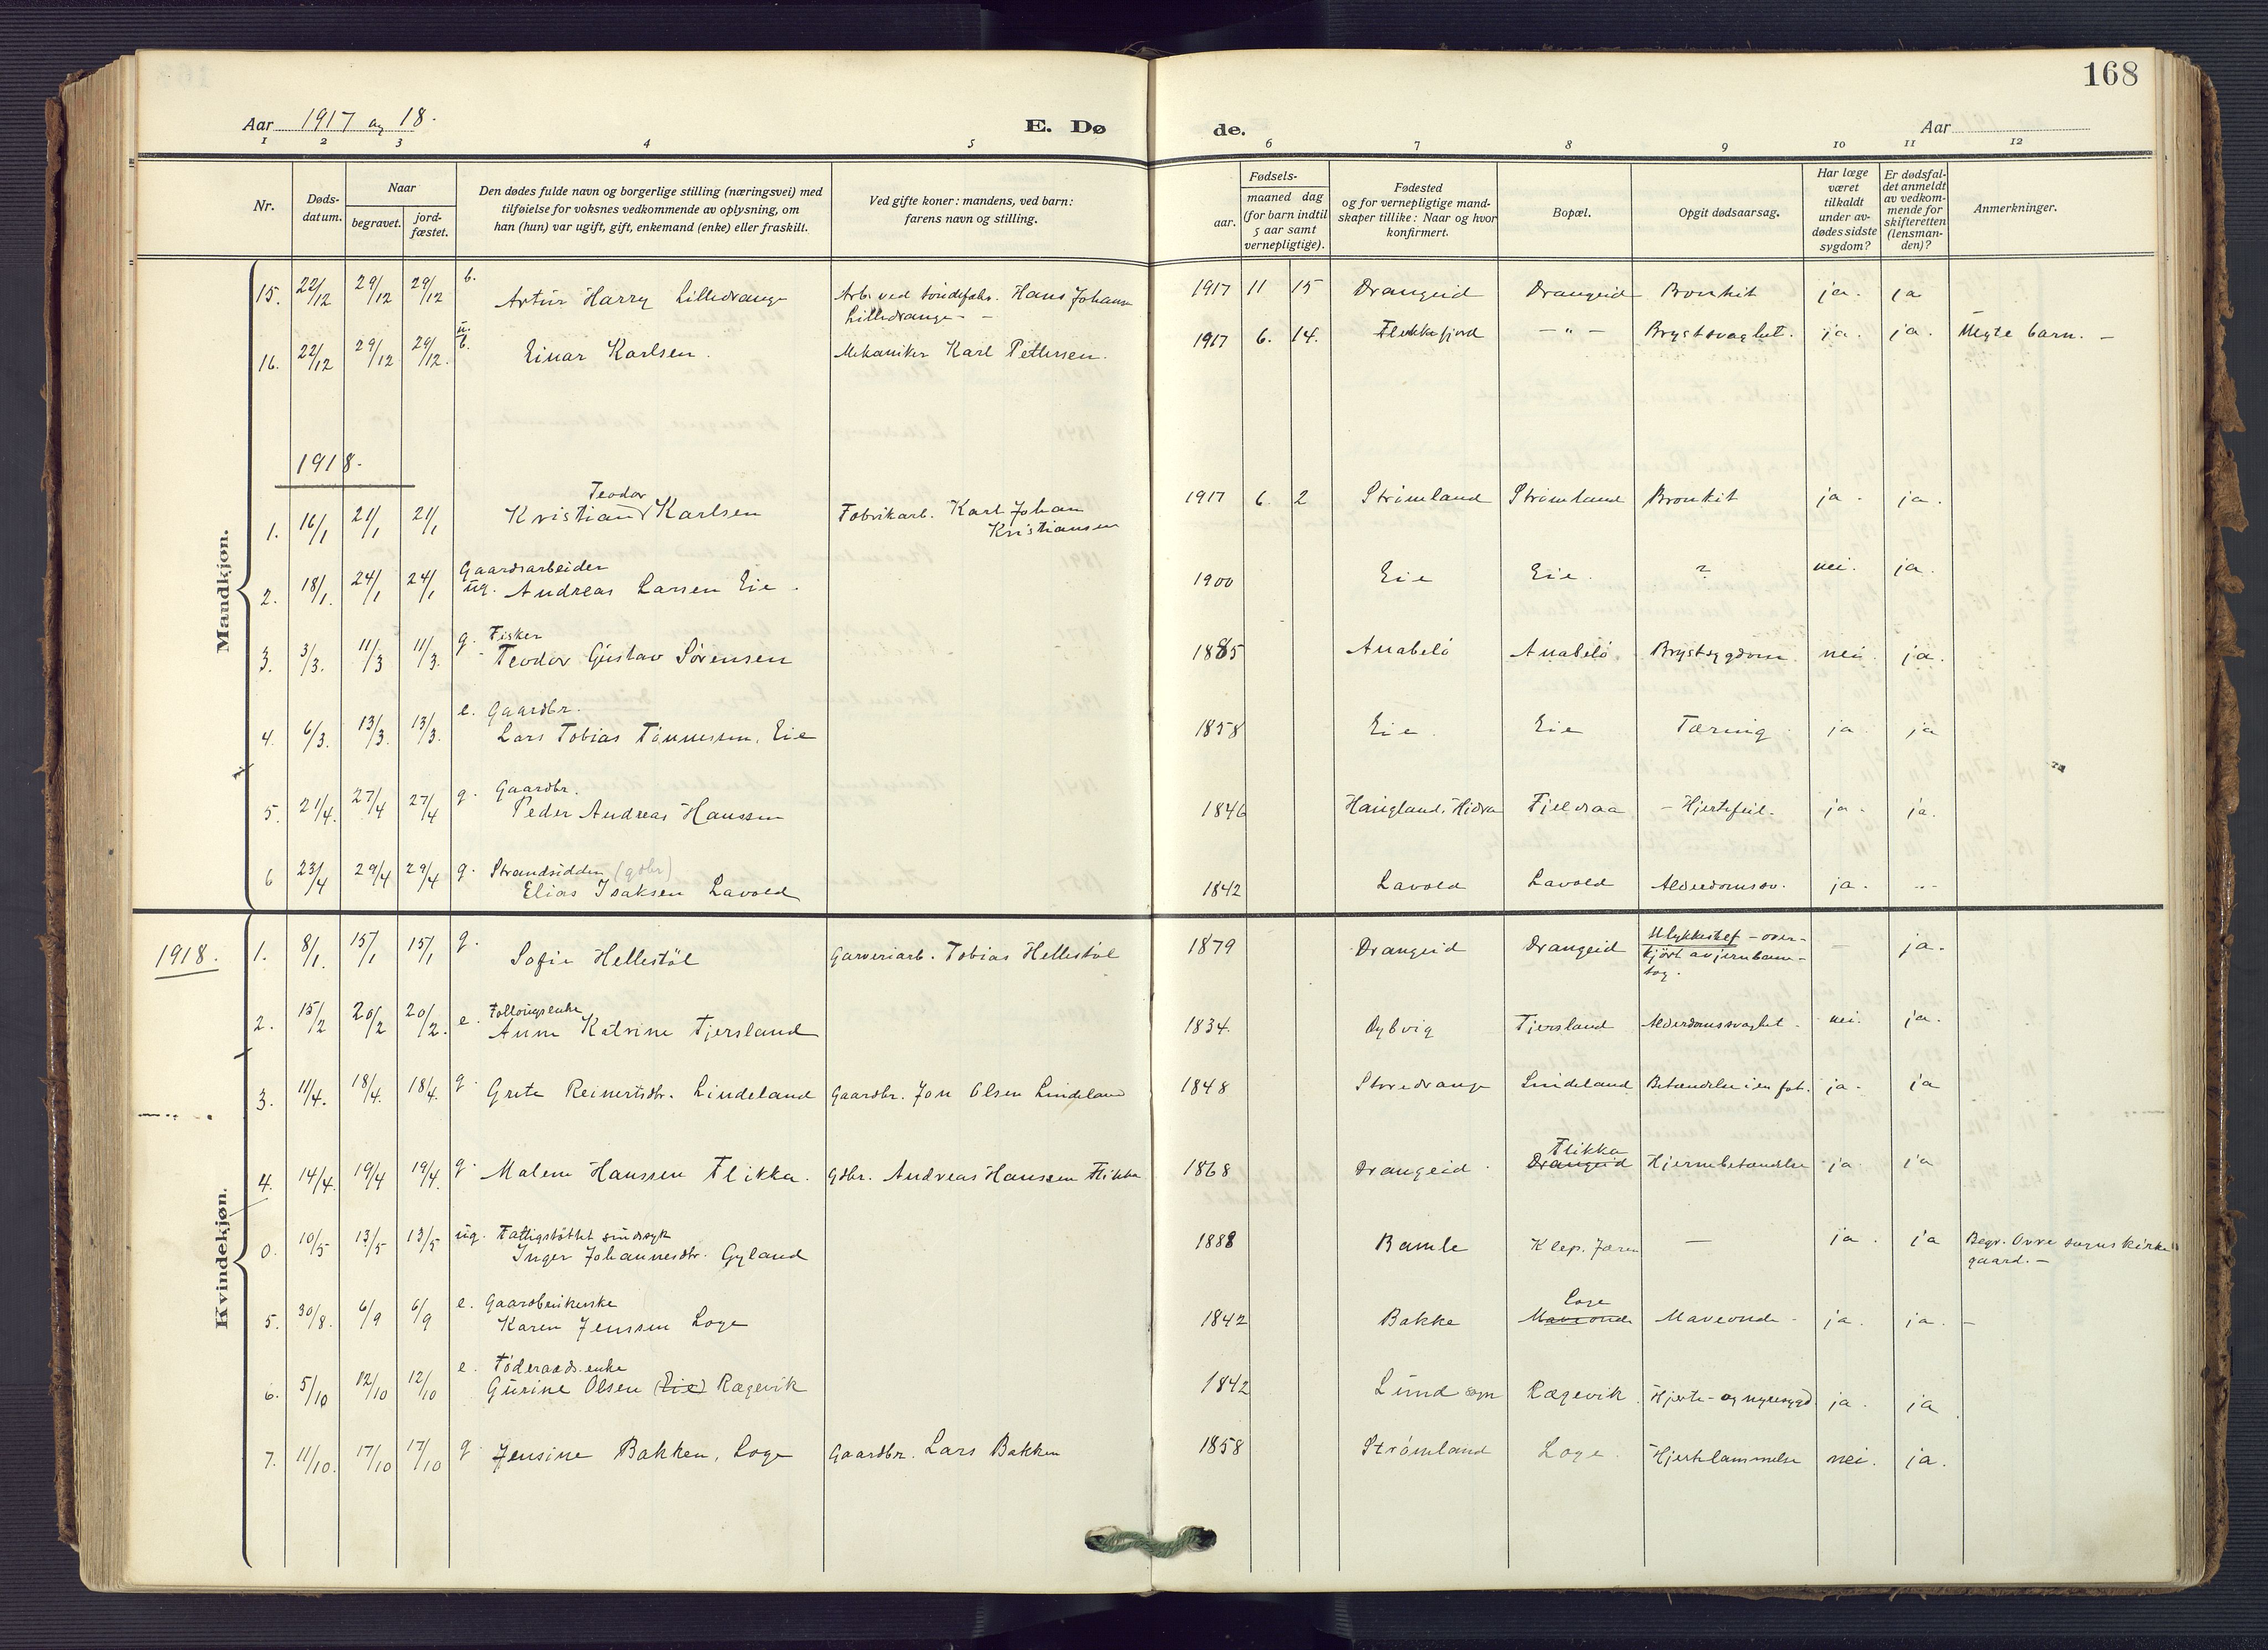 168
Aar 1917 og 18.
E. Dø de.
Aar
1 2 3 4 5 6 7 8 9 10 11 12
Nr.
Døds-
datum.
Naar
begravet.
jord-
fæstet.
Den dødes fulde navn og borgerlige stilling (næringsvei) med
tilføielse for voksnes vedkommende av oplysning, om
han (hun) var ugift, gift, enkemand (enke) eller fraskilt.
Ved gifte koner: mandens, ved barn:
farens navn og stilling.
Fødsels-
aar.
maaned dag
(for barn indtil
5 aar samt
vernepligtige).
Fødested
og for vernepligtige mand-
skaper tillike: Naar og hvor
konfirmert.
Bopæl.
Opgit dødsaarsag.
Har læge
været
tilkaldt
under av-
dødes sidste
sygdom?
Er dødsfal-
det anmeldt
av vedkom-
mende for
skifteretten
(lensman-
den)?
Anmerkninger.
Mandkjøn.
15. 22/12 29/12 29/12 b. Artur Harry Lilledrange Arb. ved Hans Johans
Lilledrange - 1917 11 15 Drangeid Drangeid Bronkit ja. ja
16. 22/12 29/12 29/12. u. b. Einar Karlsen. Mekaniker Karl Pettersen. 1917 6. 14. Flekkefjord - " - Brystsvaghet. ja. ja. Uegte barn. -
1918.
1. 16/1 21/1 21/1 Kristian Teodor Karlsen Fabrikarb. Karl Johan
Kristiansen 1917 6. 2 Strømland Strømland Bronkit ja. ja.
2. 18/1. 24/1 24/1 Gaardsarbeider
ug. Andreas Larsen Eie. 1900 Eie Eie. ? nei. ja.
3. 3/3. 11/3 11/3. g. Fisker
Teodor Gustav Sørensen 1885 Anabelø Anabelø. Brystsygdom. nei ja.
4. 6/3. 13/3. 13/3. e. Gaardbr.
Lars Tobias Tønnessen, Eie 1858 Eie. Eie Tæring ja ja
5. 21/4. 27/4 27/4 g. Gaardbr.
Peder Andreas Hanssen 1846 Haugland, Hidra Fjeldsaa - Hjertefeil. ja. ja.
6 23/4 29/4 29/4 g. Strandsidder (gdbr)
Elias Isaksen Lavold 1842 Lavold Lavold Alderdomssv. ja. -"-
Kvindekjøn.
1918. 1. 8/1. 15/1 15/1 g. Sofie Hellestøl Garveriarb. Tobias Hellestøl 1879 Drangeid Drangeid Ulykkestilf - over-
kjørt av jernbane-
tog. - ja.
2. 15/2 20/2 20/2. e. Follougsenke
Anne Katrine Tjersland 1834. Dybvig Tjersland Alderdomssvaghet. nei. ja.
3. 11/4. 18/4. 18/4. g. Grete Reinertsdtr. Lindeland Gaardbr. Jon Olsen Lindeland 1848 Storedrange Lindeland Betændelse i en fot. ja. ja
4. 14/4. 19/4 19/4. g. Malene Hanssen Flikka. gdbr. Andreas Hanssen Flikka 1868 Drangeid. Flikka
Drangeid Hjernebetændelse ja. ja
0. 10/5 13/5 13/5 ug. Fattigstøttet sindssyk
Inger Johannesdtr. Gyland 1888 Bamle Klep. Jæren - ja. ja Begr. Ovre sogns kirke
gaard. -
5. 30/8. 6/9 6/9 e. Gaardbrukerske
Karen Jenssen Loge 1842 Bakke Loge
Maveonde Maveonde - ja. ja. -
6. 5/10 12/10 12/10 e. Føderaads.enke
Gurine Olsen (Eie) Rægevik 1842 Lund sogn Rægevik. Hjerte- og nyresygd. ja. ja.
7. 11/10. 17/10 17/10 g. Jensine Bakken, Loge Gaardbr. Lars Bakken 1858 Strømland Loge. Hjertelammelse nei. ja.